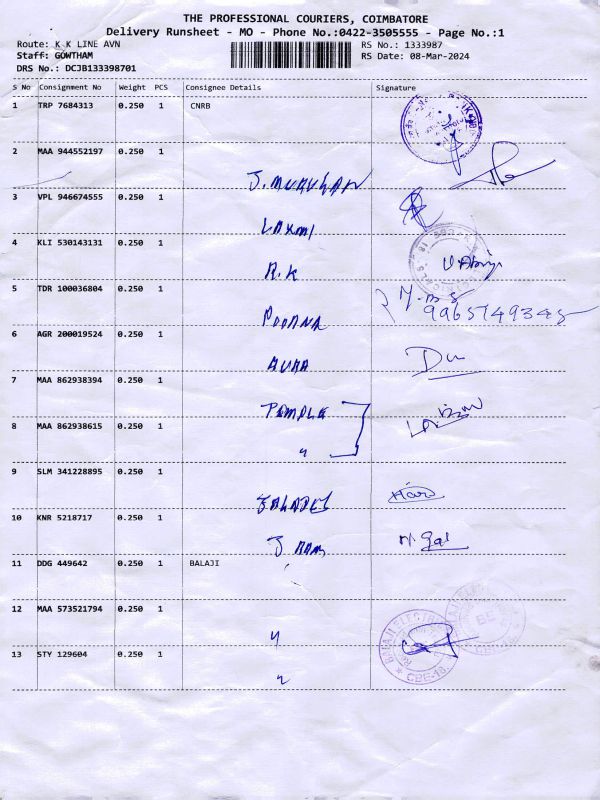 THE PROFESSIONAL COURIERS, COIMBATORE
Delivery Runsheet - MO - Phone No.:0422-3505555 - Page No.:1
Route: K K LINE AVN RS No.: 1333987
Staff: GOWTHAM RS Date: 08-Mar-2024
DRS No.: DCJB133398701
S No Consignment No Weight PCS Consignee Details Signature
1 TRP 7684313 0.250 1 CNRB
2 MAA 944552197 0.250 1
J. MURUGAN
3 VPL 946674555 0.250 1
LAXMI
4 KLI 530143131 0.250 1
R.K
5 TDR 100036804 0.250 1
POORNA
6 AGR 200019524 0.250 1
7 MAA 862938394 0.250 1
TEMPLE
8 MAA 862938615 0.250 1
"
9 SLM 341228895 0.250 1
10 KNR 5218717 0.250 1
J RAM
11 DDG 449642 0.250 1 BALAJI
12 MAA 573521794 0.250 1
"
13 STY 129604 0.250 1
"
BALAJI ELECTR
CBE-18